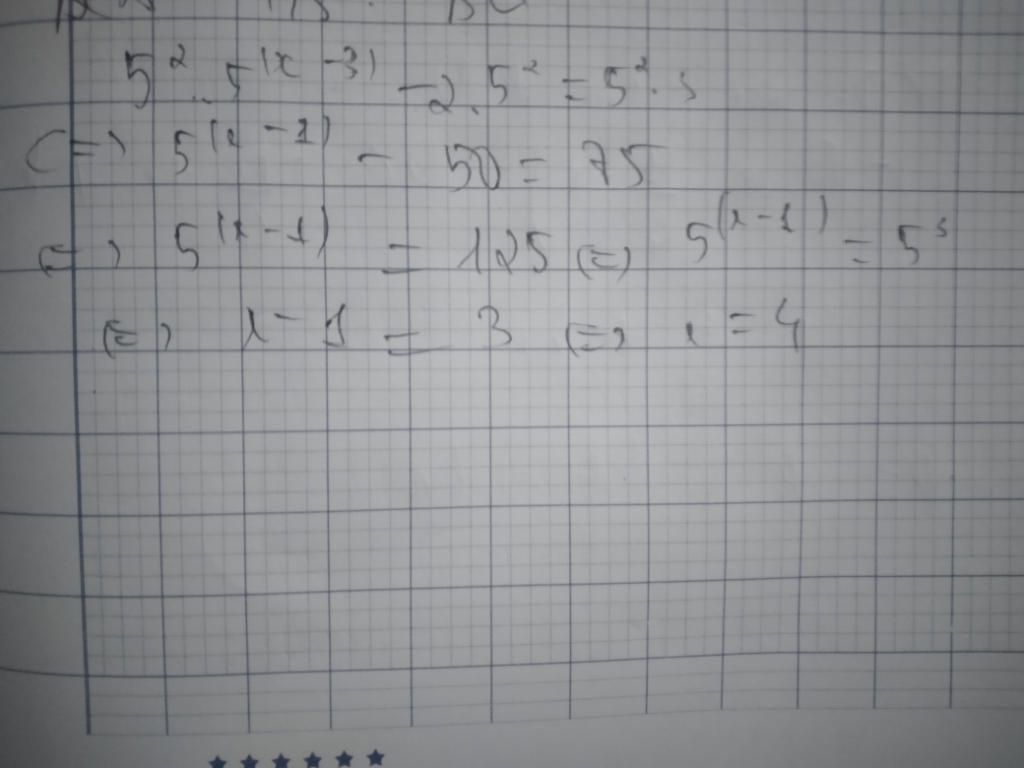 5² . 5^(x - 3) - 2.5² = 5² . 3
<=> 5^(x - 1) - 50 = 75
<=> 5^(x - 1) = 125 <=> 5^(x - 1) = 5³
<=> x - 1 = 3 <=> x = 4